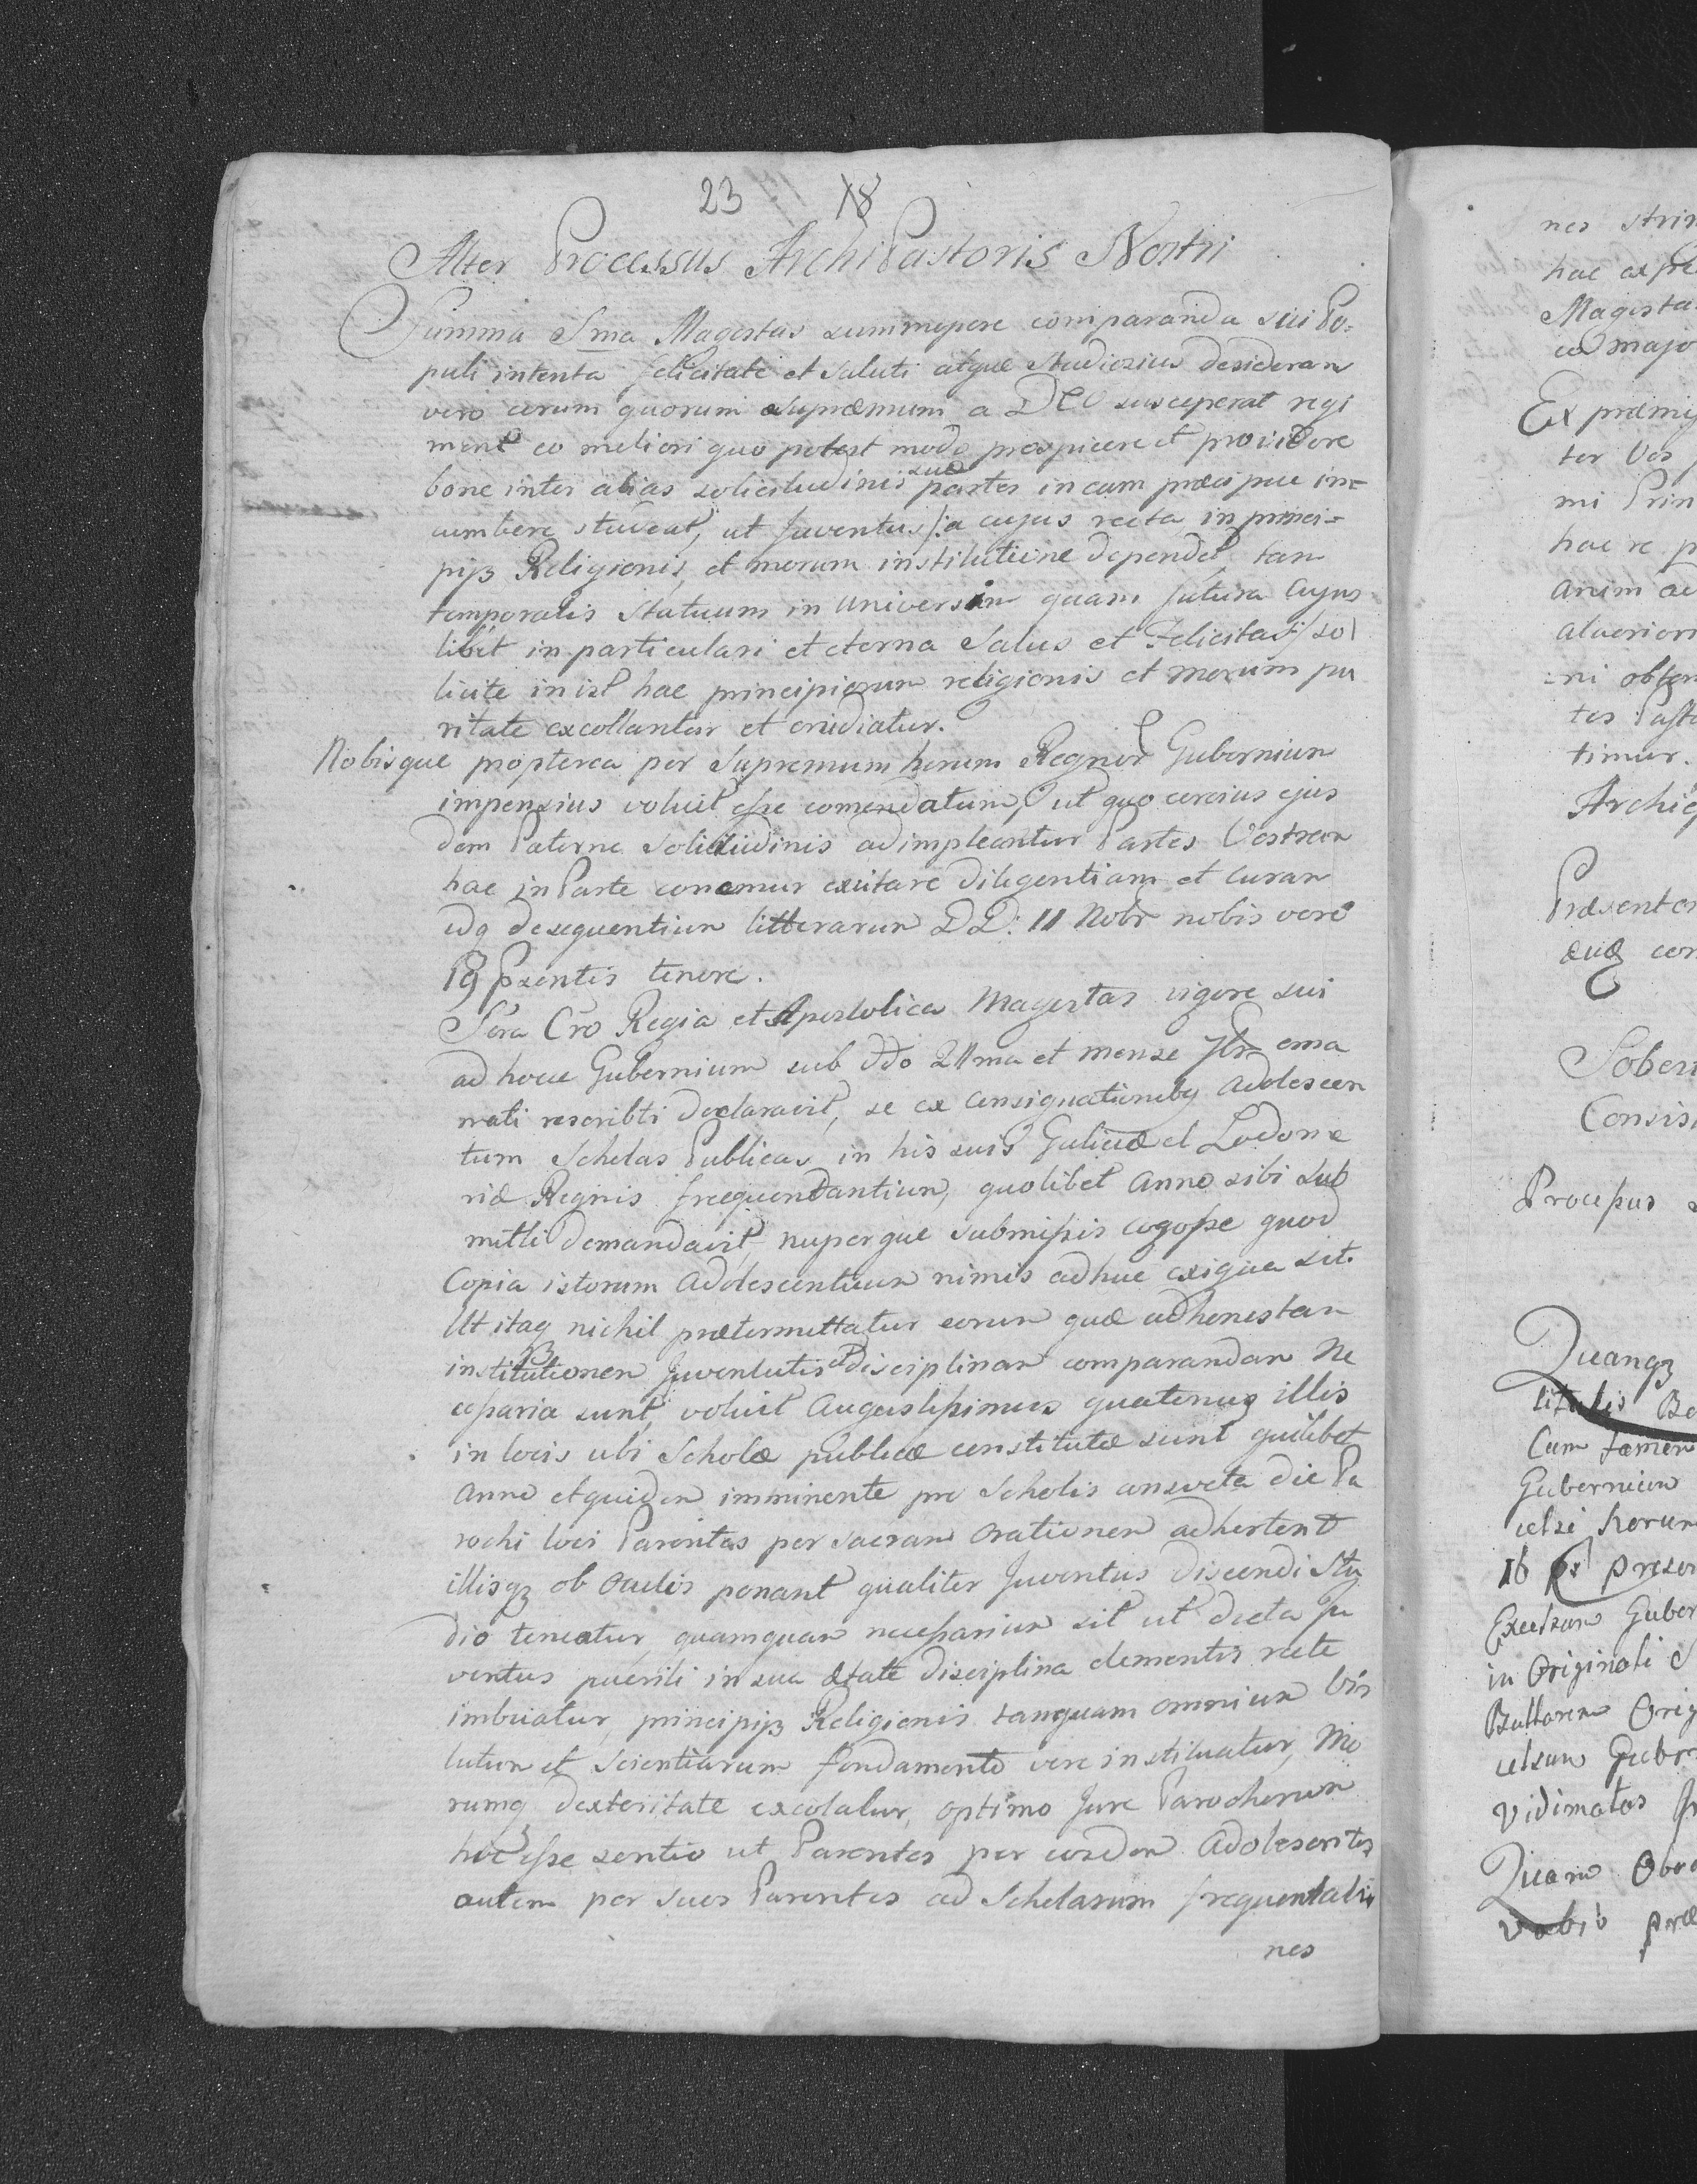 23 18
Alter Processus ArchiPastoris Nostri
Summa Sma Magestas summopere comparanda sui Po=
puli intenta felicitati et saluti atque studiosius desideran
vero eorum quorum supræmum a DEO susceperat regi
ment eo meliori quo potest modo prospicere et providere
bone inter alias solicitudinis suæ partes in eam præcipue in=
cumbere studeat, ut Juventus /:a cujus recta in princi=
pijs Religionis, et morum institutione dependet tan
temporalis statuum in universim quam futura cujus
libet in particulari et eterna Salus et Felicitas:/ sol
licite in ist hac principiorum religionis et morum pu
ritate excollantur et erudiatur.
Nobisque propterea per Supremum horum Regnor Gubernium
impensius voluit esse comendatum, ut quo cercius ejus
dem Paterne Solicitudinis adimpleantur Partes Vestram
hac in Parte conemur excitare diligentiam et curam
idq desequentium litterarum DD: 11 Nobr nobis vero
19 Præsentis tenore.
Sacra Cæo Regia et Apostolica Magestas vigore sui
ad hocce Gubernium sub ddo 21ma et mense 7br ema
nati rescribti declaravit, se ex consignationibg adolescen
tum Scholas Publicas in his suis Galiciæ et Lodome
riæ Regnis frequentantium, quolibet anno sibi sub
mitti demandavit, nuperque submissis cognosse quod
Copia istorum adolescentium nimis adhuc exigua sit.
Ut itaq nichil prætermittatur eorum quæ ad honestam
institutionem Juventutis et disciplinam comparandam Ne
cessaria sunt, voluit Augustissimus quatenus illis
in locis ubi Scholæ publicæ constitutæ sunt quilibet
anno etquidem imminente pro Scholis consveta die Pa
rochi loci Parentes per sacram orationem adhortent
illisqz ob oculis ponant qualiter Juventus discendi Stu
dio teneatur quamquam necessarium sit ut dicta Ju
ventus puerili in sua ætate disciplina elementis recte
imbuatur, principijs Religionis tanquam omnium Vir
tutum et Scientiarum fundamento vere instituatur, Mo
rumq dexteritate excolatur, optimo Jure Parochorum
hoc esse sentio ut Parentes per eosdem Adolescentes
autem per suos Parentes ad Scholarum frequentatio
nes
nes
hac
Magesta
eo majo
Ex præmiss
ter Vos
mi Prin
hac re p
anim ad
ni
timur.
Præsentes
Consis
Processus
Quanqz
titulis
Cum tamen
Gubernium
celsi horum
16
Excelsum Guber
in Originali
celsum
Vidimatas
Quam
vobis præ